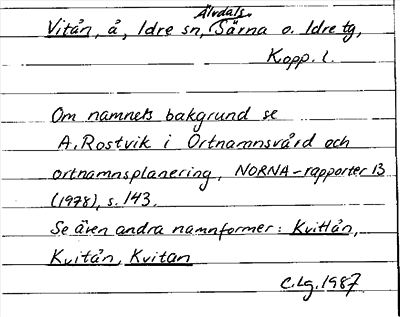 Älvdals.
Vitån, å, Idre sn, Särna o. Idre tg,
Kopp. l.
Om namnets bakgrund se
A. Rostvik i Ortnamnsvård och
ortnamnsplanering, NORNA-rapporter 13
(1978), s. 143.
Se även andra namnformer: Kvitlån,
Kvitån, Kvitan
C.Lg. 1987